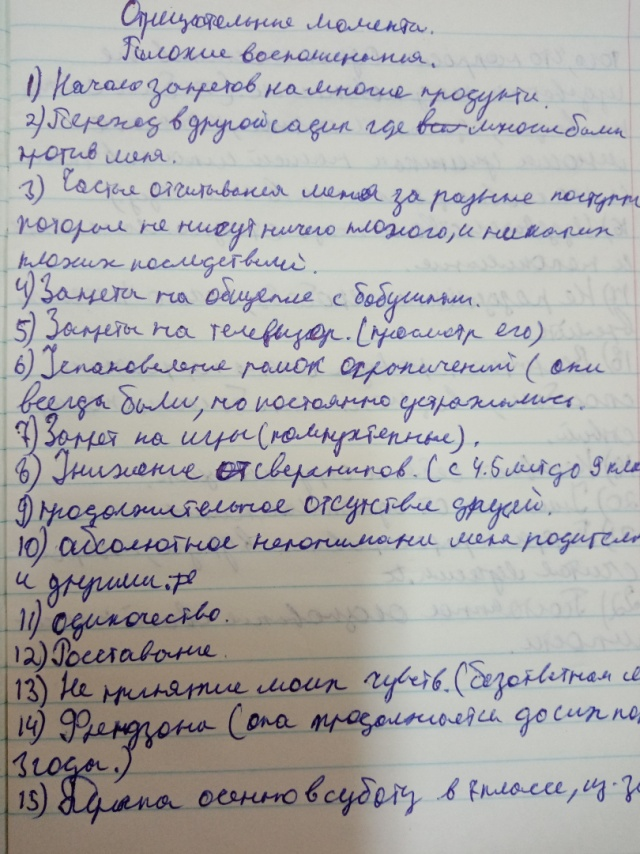 Отрицательные моменты.
Плохие воспоминания.
1) Начало запретов на многие продукты.
2) Переход в другой садик где многие были
против меня.
3) Частые отчитывания меня за разные поступки
которые не несут ничего плохого, и никаких
плохих последствий.
4) Запреты на общение с бабушками.
5) Запреты на телевизор. (просмотр его)
6) Установление рамок ограничений (они
всегда были, но постоянно
7) Запрет на игры (компьютерные).
8) Унижение от сверстников. (с 4.5 лет до 9 клас
9) продолжительное отсутствие друзей.
10) абсолютное непонимани меня родителям
и другими.
11) одиночество.
12) Расставание.
13) Не принятие моих чувств. (безответная
14) Френдзона (она продолжается до сих по
3 года.)
15) осенью в субботу в 7 классе, из-за